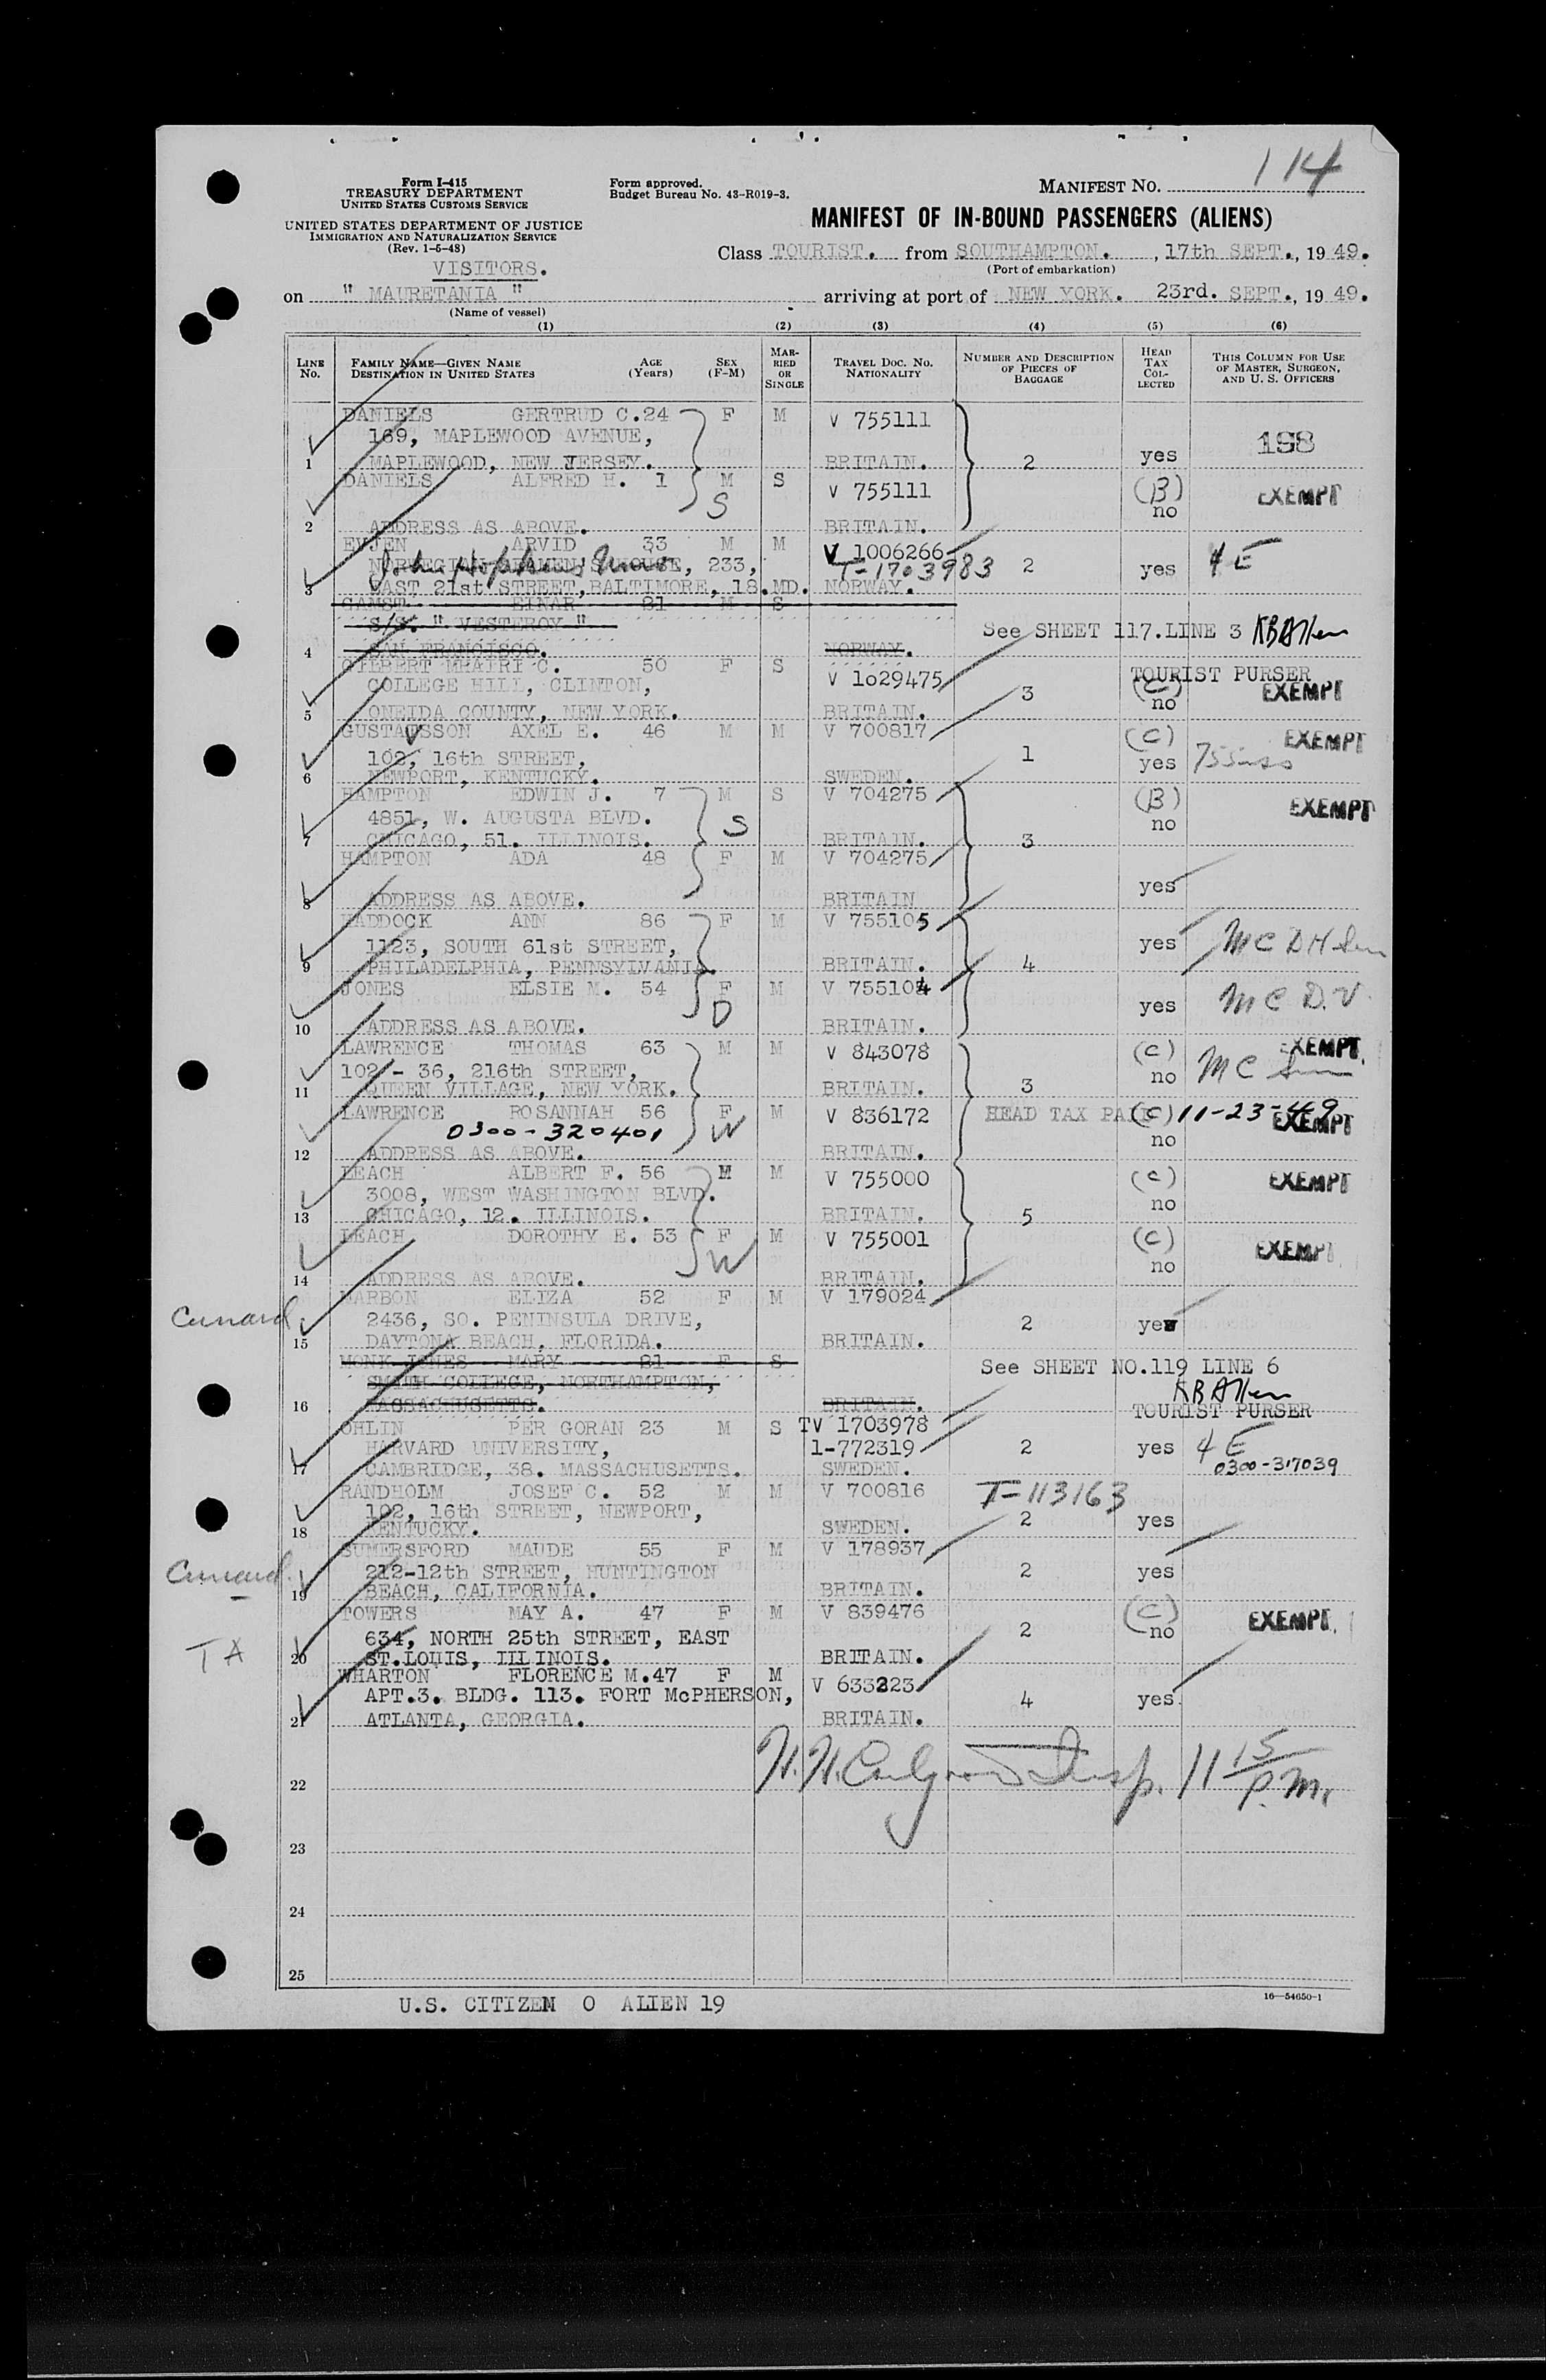 114
Form I-415
TREASURY DEPARTMENT
UNITED STATES CUSTOMS SERVICE
UNITED STATES DEPARTMENT OF JUSTICE
IMMIGRATION AND NATURALIZATION SERVICE
(Rev. 1-5-48)
VISITORS.
Form approved.
Budget Bureau No. 43-R019-3.
MANIFEST NO.
MANIFEST OF IN-BOUND PASSENGERS (ALIENS)
Class TOURIST. from SOUTHAMPTON. , 17th SEPT., 1949.
(Port of embarkation)
on " MAURETANIA " arriving at port of NEW YORK. 23rd. SEPT., 1949.
(Name of vessel)
(1) (2) (3) (4) (5) (6)
LINE No. FAMILY NAME—GIVEN NAME DESTINATION IN UNITED STATES AGE (Years) SEX (F-M) MARRIED OR SINGLE TRAVEL DOC. NO. NATIONALITY NUMBER AND DESCRIPTION OF PIECES OF BAGGAGE HEAD TAX COLLECTED THIS COLUMN FOR USE OF MASTER, SURGEON, AND U. S. OFFICERS
DANIELS GERTRUD C. 24 F M V 755111
169, MAPLEWOOD AVENUE, 198
1 MAPLEWOOD, NEW JERSEY. BRITAIN. 2 yes
DANIELS ALFRED H. 1 M S V 755111 (B) EXEMPT
S no
2 ADDRESS AS ABOVE. BRITAIN.
EVJEN ARVID 33 M M V 1006266
NORWEGIAN SEAMENS HOUSE, 233, T-1703983 2 yes 4E
John Hopkins Univ.
3 EAST 21st STREET, BALTIMORE, 18.MD. NORWAY.
GAMST EINAR 21 M S
S/S. " VESTEROY " See SHEET 117.LINE 3 KBAllen
4 SAN FRANCISCO. NORWAY.
TOURIST PURSER
GILBERT MHAIRI C. 50 F S V 1o29475
COLLEGE HILL, CLINTON, 3 (C) no EXEMPT
5 ONEIDA COUNTY, NEW YORK. BRITAIN.
GUSTAVSSON AXEL E. 46 M M V 700817 (C) EXEMPT
102, 16th STREET, 1 yes
6 NEWPORT, KENTUCKY. SWEDEN.
HAMPTON EDWIN J. 7 M S V 704275 (B) EXEMPT
4851, W. AUGUSTA BLVD. S no
7 CHICAGO, 51. ILLINOIS. BRITAIN. 3
HAMPTON ADA 48 F M V 704275
yes
8 ADDRESS AS ABOVE. BRITAIN
HADDOCK ANN 86 F M V 755105
1123, SOUTH 61st STREET, yes MC
9 PHILADELPHIA, PENNSYLVANIA. BRITAIN. 4
JONES ELSIE M. 54 F M V 755104 yes MC D.V.
D
10 ADDRESS AS ABOVE. BRITAIN.
LAWRENCE THOMAS 63 M M V 843078 (C) EXEMPT
102 - 36, 216th STREET, no MC
11 QUEEN VILLAGE, NEW YORK. BRITAIN. 3
LAWRENCE ROSANNAH 56 F M V 836172 HEAD TAX PAID (C) 11-23-49 EXEMPT
0300-320401 W no
12 ADDRESS AS ABOVE. BRITAIN.
LEACH ALBERT F. 56 M M V 755000 (C) EXEMPT
3008, WEST WASHINGTON BLVD. no
13 CHICAGO, 12. ILLINOIS. BRITAIN. 5
LEACH DOROTHY E. 53 F M V 755001 (C) EXEMPT
W no
14 ADDRESS AS ABOVE. BRITAIN.
HARBON ELIZA 52 F M V 179024
Cunard 2436, SO. PENINSULA DRIVE, 2 yes
15 DAYTONA BEACH, FLORIDA. BRITAIN.
MONK JONES MARY 21 F S See SHEET NO.119 LINE 6
SMITH COLLEGE, NORTHAMPTON, KBAllen
16 MASSACHUSETTS. BRITAIN. TOURIST PURSER
OHLIN PER GORAN 23 M S TV 1703978
HARVARD UNIVERSITY, 1-772319 2 yes 4E
17 CAMBRIDGE, 38. MASSACHUSETTS. SWEDEN. 0300-317039
RANDHOLM JOSEF C. 52 M M V 700816 T-113163
102, 16th STREET, NEWPORT, 2 yes
18 KENTUCKY. SWEDEN.
SUMERSFORD MAUDE 55 F M V 178937
Cunard. 212-12th STREET, HUNTINGTON 2 yes
19 BEACH, CALIFORNIA. BRITAIN.
TOWERS MAY A. 47 F M V 839476 (C) EXEMPT
TA 634, NORTH 25th STREET, EAST 2 no
20 ST.LOUIS, ILLINOIS. BRITAIN.
WHARTON FLORENCE M. 47 F M V 633223
APT.3. BLDG. 113. FORT McPHERSON, 4 yes.
21 ATLANTA, GEORGIA. BRITAIN.
Insp. 11 15 P.M.
22
23
24
25
U.S. CITIZEN O ALIEN 19
16—54650-1